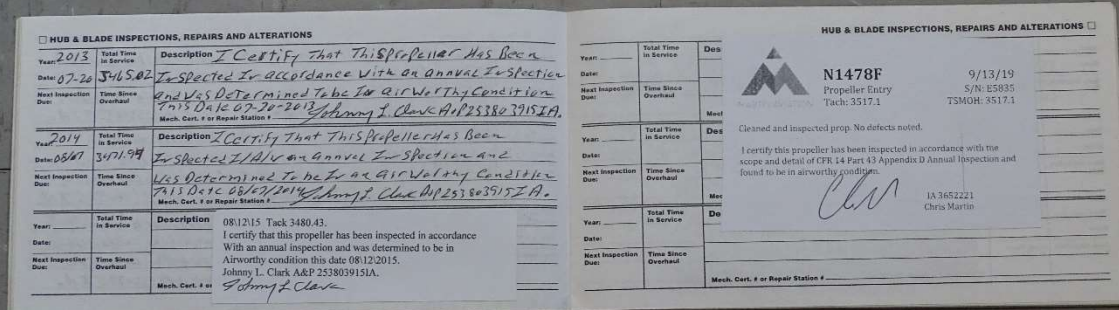 HUB & BLADE INSPECTIONS, REPAIRS AND ALTERATIONS
Year: 2013 Total Time in Service Description I Certify That This Propeller Has Been
Date: 07-20 3465.02 Inspected In accordance With an annual Inspection
Next Inspection Due: Time Since Overhaul and Was Determined To be In air Worthy Condition
This Date 07-20-2013 Johnny L. Clark A&P 253803915IA.
Mech. Cert. # or Repair Station #
Year: 2014 Total Time in Service Description I Certify That This Propeller Has Been
Date: 08/07 Inspected I/A/W an annual Inspection and
Next Inspection Due: Time Since Overhaul Was Determined To be In an air Worthy Condition
This Date 08/07/2014 Johnny L. Clark A&P 253803915IA.
Mech. Cert. # or Repair Station #
Year: Total Time in Service Description
Date:
Next Inspection Due: Time Since Overhaul
Mech. Cert. # o
08\12\15 Tack 3480.43.
I certify that this propeller has been inspected in accordance
With an annual inspection and was determined to be in
Airworthy condition this date 08\12\2015.
Johnny L. Clark A&P 253803915IA.
Johnny L Clark
HUB & BLADE INSPECTIONS, REPAIRS AND ALTERATIONS
Year: Total Time in Service Des
Date:
Next Inspection Due: Time Since Overhaul
Mech
Year: Total Time in Service Des
Date:
Next Inspection Due: Time Since Overhaul
Mec
Year: Total Time in Service De
Date:
Next Inspection Due: Time Since Overhaul
Mech. Cert. # or Repair Station #
N1478F 9/13/19
Propeller Entry S/N: E5835
Tach: 3517.1 TSMOH: 3517.1
Cleaned and inspected prop. No defects noted.
I certify that this propeller has been inspected in accordance with the
scope and detail of CFR 14 Part 43 Appendix D Annual Inspection and
found to be in airworthy condition.
IA 3652221
Chris Martin